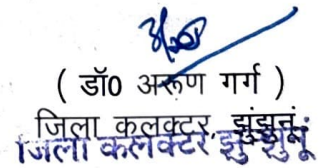 ( डॉ0 अरूण गर्ग )
जिला कलक्टर, झुंझुनूं
जिला कलक्टर झुंझुनूं